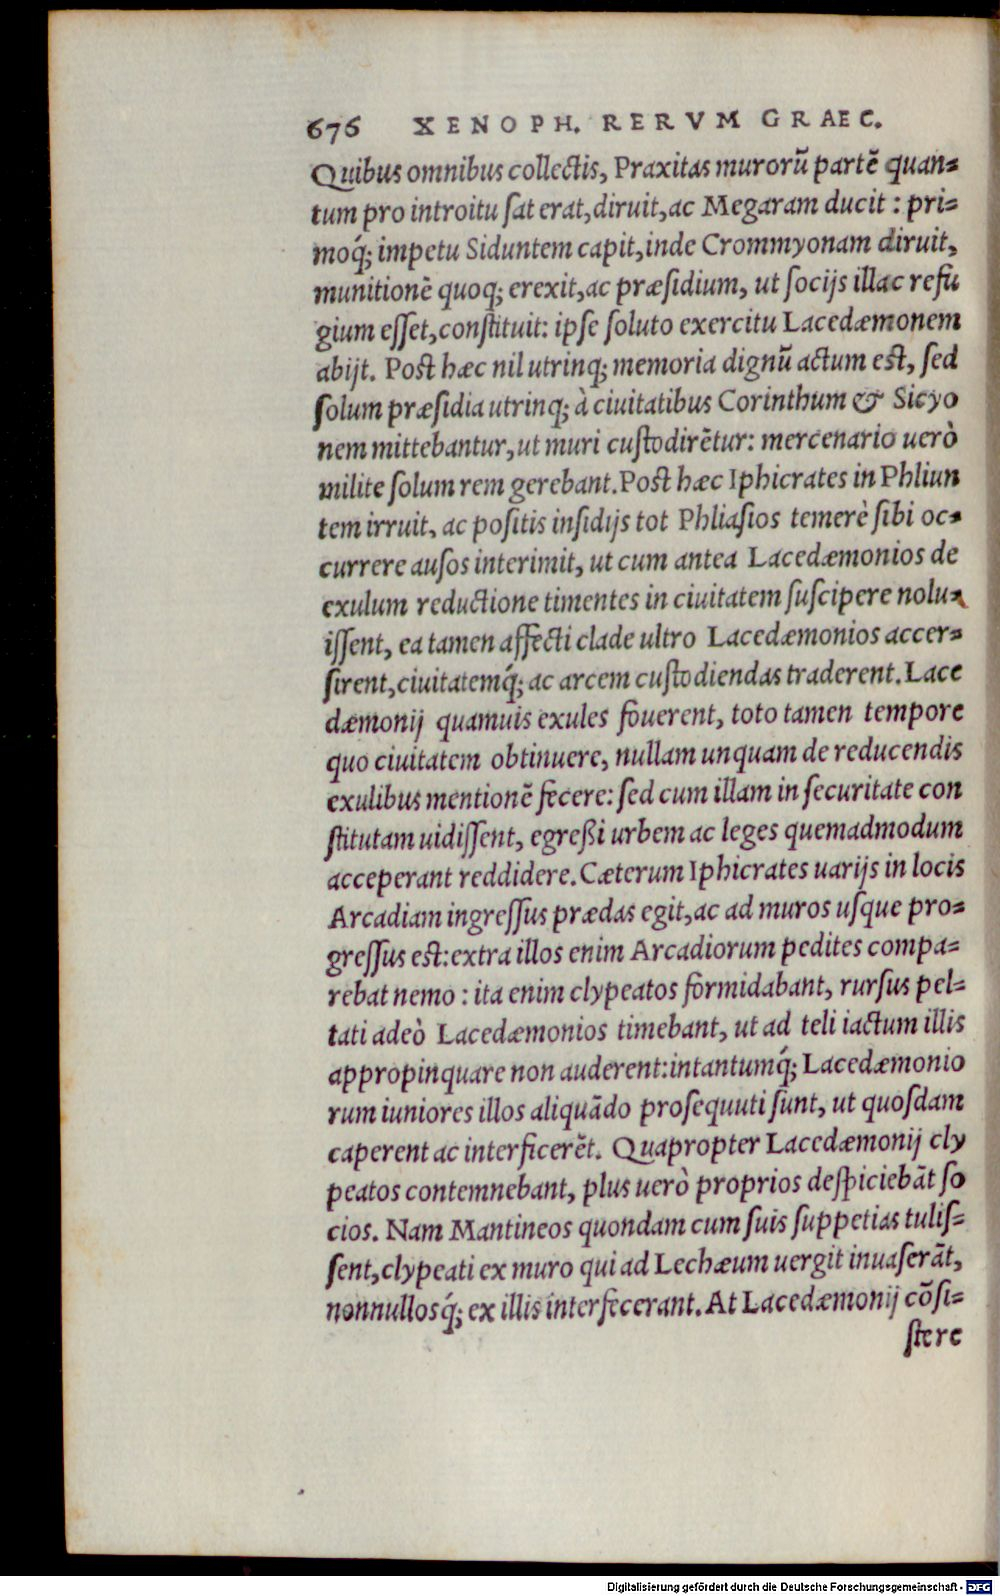 676 XENOPH. RERVM GRAEC.
Quibus omnibus collectis, Praxitas murorũ partẽ quan⸗
tum pro introitu ſat erat, diruit, ac Megaram ducit : pri⸗
moq́; impetu Siduntem capit, inde Crommyonam diruit,
munitionẽ quoq; erexit, ac præſidium, ut ſocijs illac refu
gium eſſet, conſtituit: ipſe ſoluto exercitu Lacedæmonem
abijt. Poſt hæc nil utrinq; memoria dignũ actum eſt, ſed
ſolum præſidia utrinq; à ciuitatibus Corinthum & Sicyo
nem mittebantur, ut muri cuſtodirẽtur: mercenario uerò
milite ſolum rem gerebant. Poſt hæc Iphicrates in Phliun
tem irruit, ac poſitis inſidijs tot Phliaſios temerè ſibi oc⸗
currere auſos interimit, ut cum antea Lacedæmonios de
exulum reductione timentes in ciuitatem ſuſcipere nolu⸗
iſſent, ea tamen affecti clade ultro Lacedæmonios accer⸗
ſirent, ciuitatemq́; ac arcem cuſtodiendas traderent. Lace
dæmonij quamuis exules fouerent, toto tamen tempore
quo ciuitatem obtinuere, nullam unquam de reducendis
exulibus mentionẽ fecere: ſed cum illam in ſecuritate con
ſtitutam uidiſſent, egreßi urbem ac leges quemadmodum
acceperant reddidere. Cæterum Iphicrates uarijs in locis
Arcadiam ingreſſus prædas egit, ac ad muros uſque pro⸗
greſſus eſt: extra illos enim Arcadiorum pedites compa⸗
rebat nemo : ita enim clypeatos formidabant, rurſus pel⸗
tati adeò Lacedæmonios timebant, ut ad teli iactum illis
appropinquare non auderent: intantumq́; Lacedæmonio
rum iuniores illos aliquãdo proſequuti ſunt, ut quoſdam
caperent ac interficerẽt. Quapropter Lacedæmonij cly
peatos contemnebant, plus uerò proprios deſpiciebãt ſo
cios. Nam Mantineos quondam cum ſuis ſuppetias tuliſ⸗
ſent, clypeati ex muro qui ad Lechæum uergit inuaſerãt,
nonnulloſq́; ex illis interfecerant. At Lacedæmonij cõſi⸗
ſtere
Digitalisierung gefördert durch die Deutsche Forschungsgemeinschaft - DFG